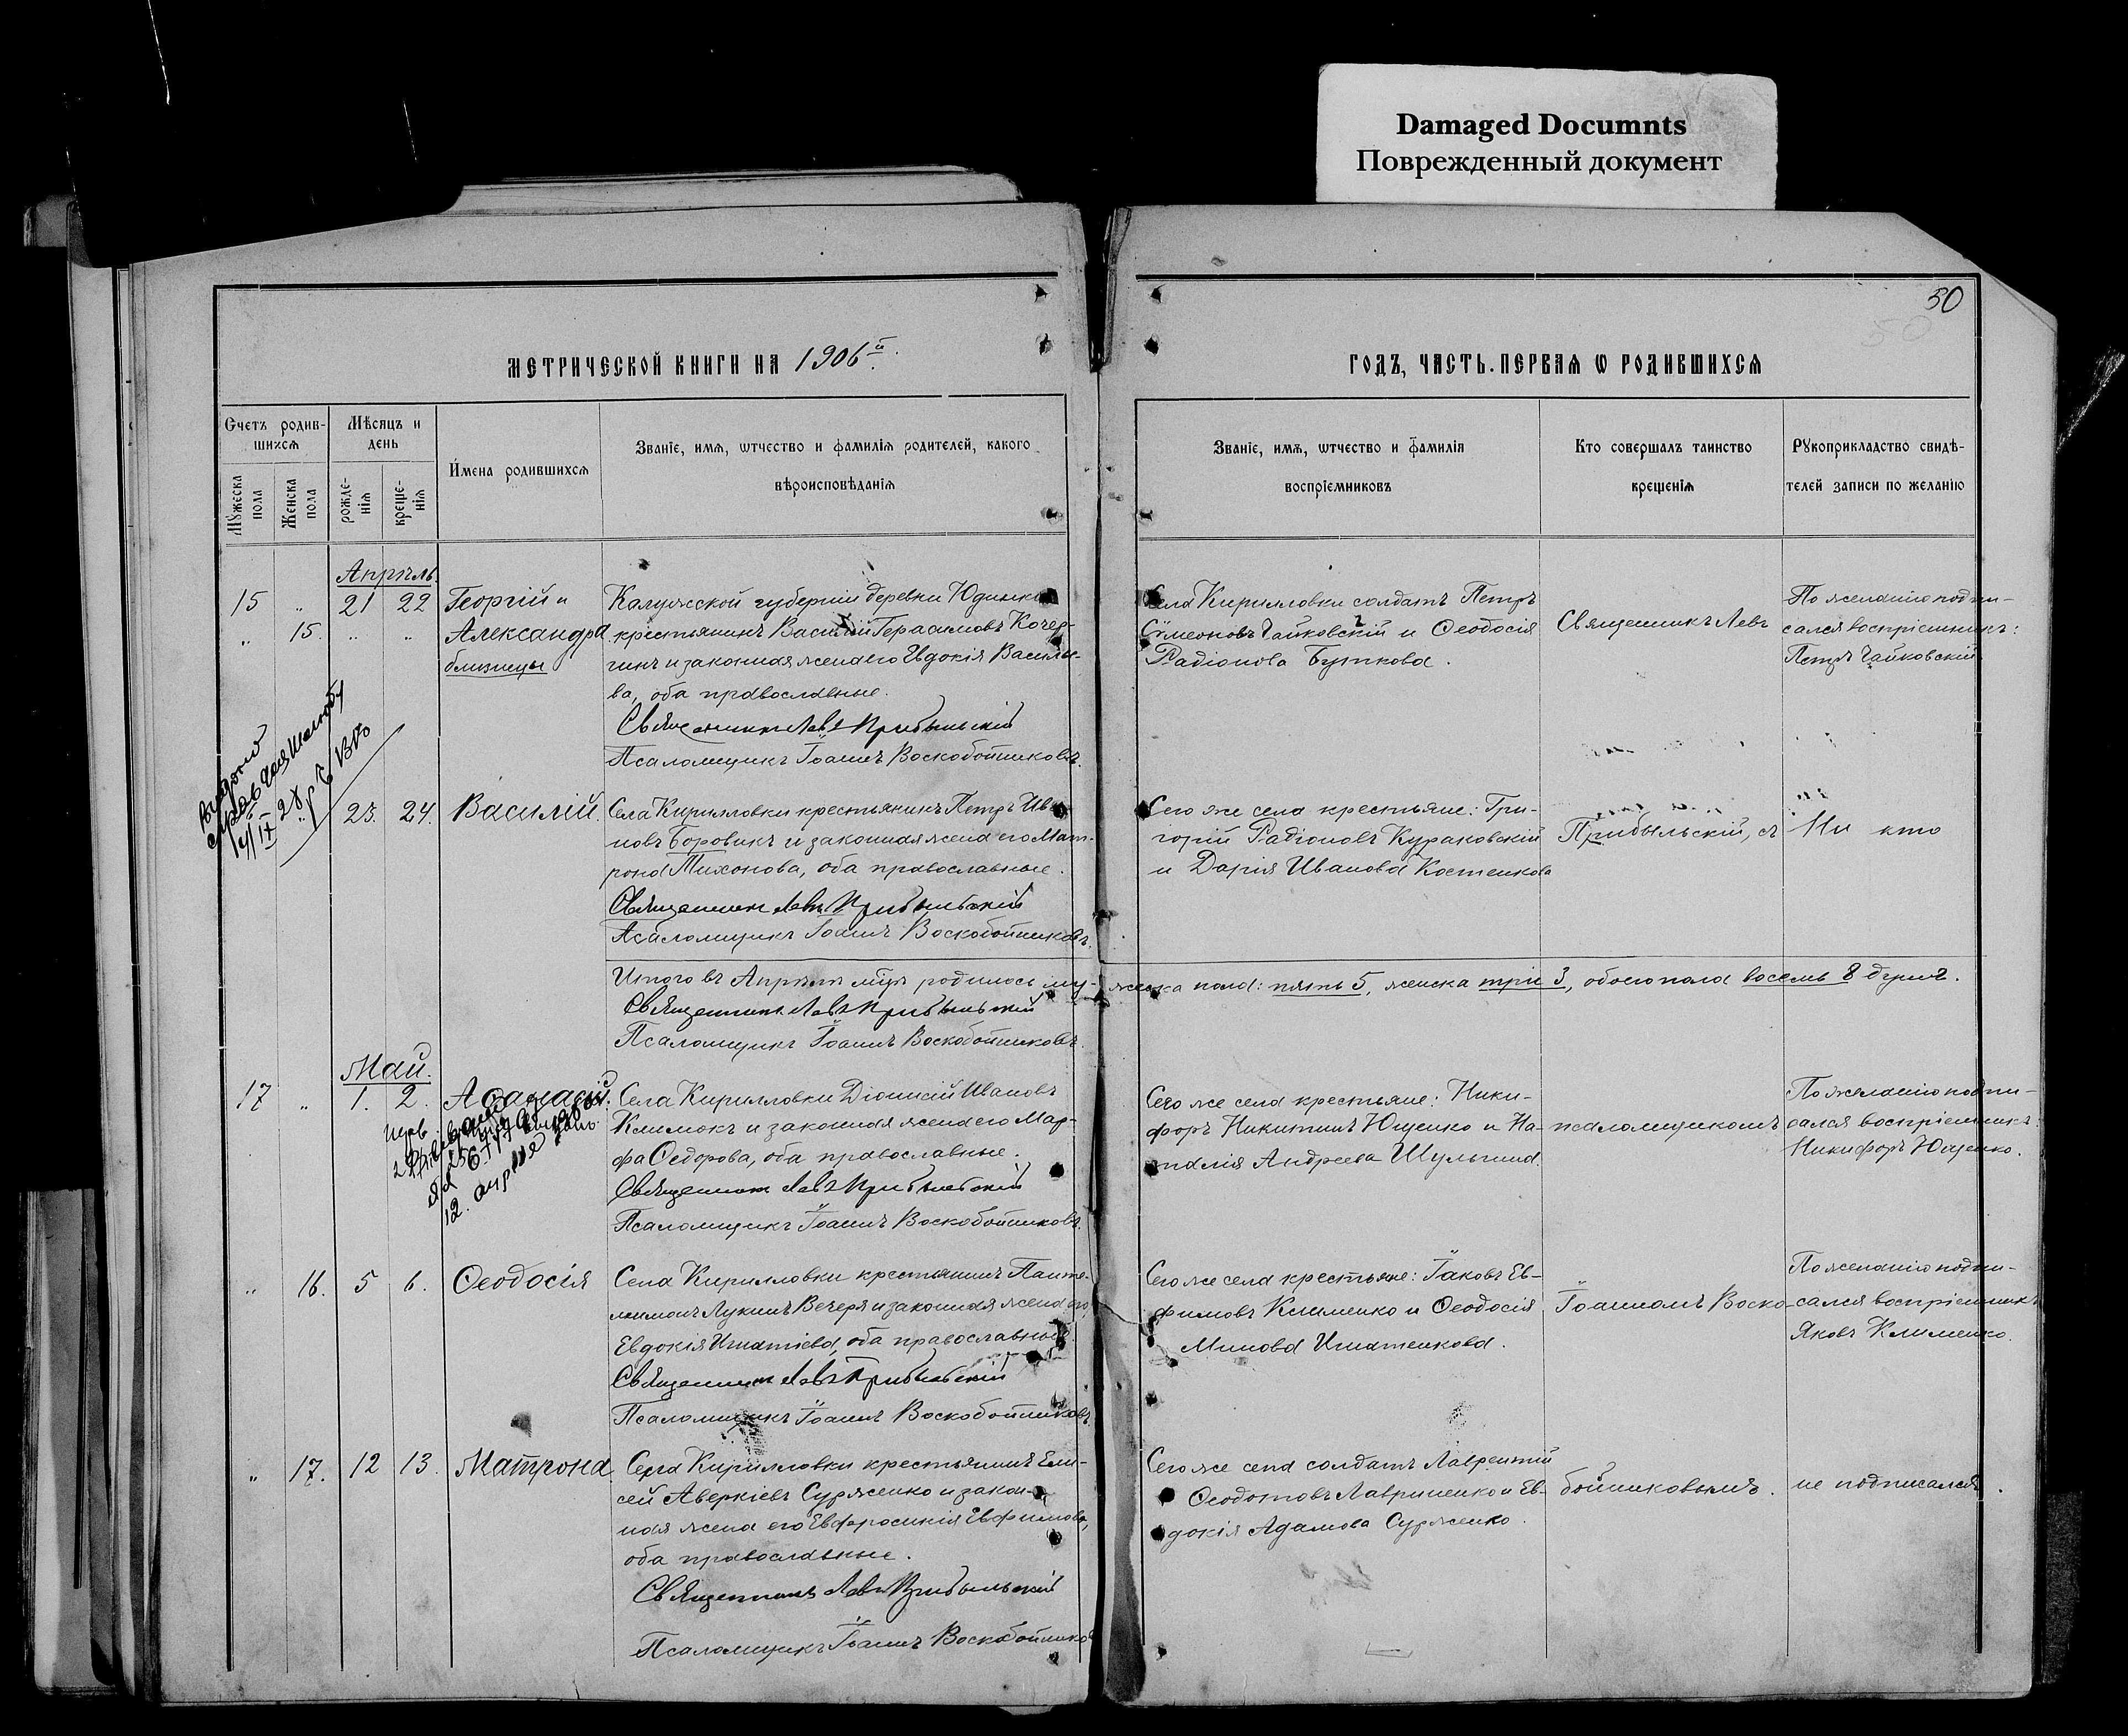 Damaged Documnts
Поврежденный документ
50
50
МЕТРИЧЕСКОЙ КНИГИ НА 1906й.
ГОДЪ, ЧАСТЬ ПЕРВАЯ Ѡ РОДИВШИХСЯ
Счетъ родив-
шихся
Мѣсяцъ и
день
Мꙋжеска
пола
Женска
пола
рожде-
нія
креще-
нія
Имена родившихся
Званіе, имя, ѡтчество и фамилія родителей, какого
вѣроисповѣданія
Званіе, имя, ѡтчество и фамилія
воспріемниковъ
Кто совершалъ таинство
крещенія
Рꙋкоприкладство свидѣ-
телей записи по желанію
Апрѣль.
15 " 21 22
" 15. " "
Георгій и
Александра
близнецы
Калужской губерніи деревни Юдинки
крестьянинъ Василій Герасимовъ Кочер-
гинъ и законная жена его Евдокія Василье-
ва, оба православные.
Священникъ Левъ Прибыльскій
Псаломщикъ Іоаннъ Воскобойниковъ.
Села Кирилловки солдатъ Петръ
Сѵмеоновъ Чайковскій и Ѳеодосія
Радіонова Буткова.
Священникъ Левъ
По желанію подпи-
сался воспріемникъ:
Петръ Чайковскій
23. 24.
Василій.
Села Кирилловки крестьянинъ Петръ Ива-
новъ Боровикъ и законная жена его Мат-
рона Тихонова, оба православные.
Священникъ Левъ Прибыльскій
Псаломщикъ Іоаннъ Воскобойниковъ.
Сего же села крестьяне: Гри-
горій Радіоновъ Кураковскій
и Дарія Иванова Костенкова
Прибыльскій, съ
Ни кто
Итого въ Апрѣлѣ мѣцѣ родилось му-жеска пола: пять 5, женска три 3, обоего пола восемь 8 душъ.
Священникъ Левъ Прибыльскій
Псаломщикъ Іоаннъ Воскобойниковъ.
Май.
17 " 1. 2.
Аѳанасій.
12. апреля
Села Кирилловки Діонисій Ивановъ
Климокъ и законная жена его Мар-
фа Ѳедорова, оба православные.
Священникъ Левъ Прибыльскій
Псаломщикъ Іоаннъ Воскобойниковъ.
Сего же села крестьяне: Ники-
форъ Никитинъ Ющенко и На-
талія Андреева Шульгина.
псаломщикомъ
По желанію подпи-
сался воспріемникъ:
Никифоръ Ющенко.
" 16. 5 6.
Ѳеодосія
Села Кирилловки крестьянинъ Панте-
леимонъ Лукинъ Вечеря и законная жена его,
Евдокія Игнатіева, оба православные.
Священникъ Левъ Прибыльскій
Псаломщикъ Іоаннъ Воскобойниковъ.
Сего же села крестьяне: Іаковъ Ев-
фимовъ Клименко и Ѳеодосія
Минова Игнатенкова.
Іоанномъ Воско-
По желанію подпи-
сался воспріемникъ
Яковъ Клименко.
" 17. 12 13.
Матрона
Села Кирилловки крестьянинъ Ели-
сей Аверкіевъ Сурженко и закон-
ная жена его Евфросинія Евфимова,
оба православные.
Священникъ Левъ Прибыльскій
Псаломщикъ Іоаннъ Воскобойников
Сего же села солдатъ Лаврентій
Ѳеодотовъ Лавриненко и Ев-
докія Адамова Сурженко.
бойниковымъ.
не подписался.